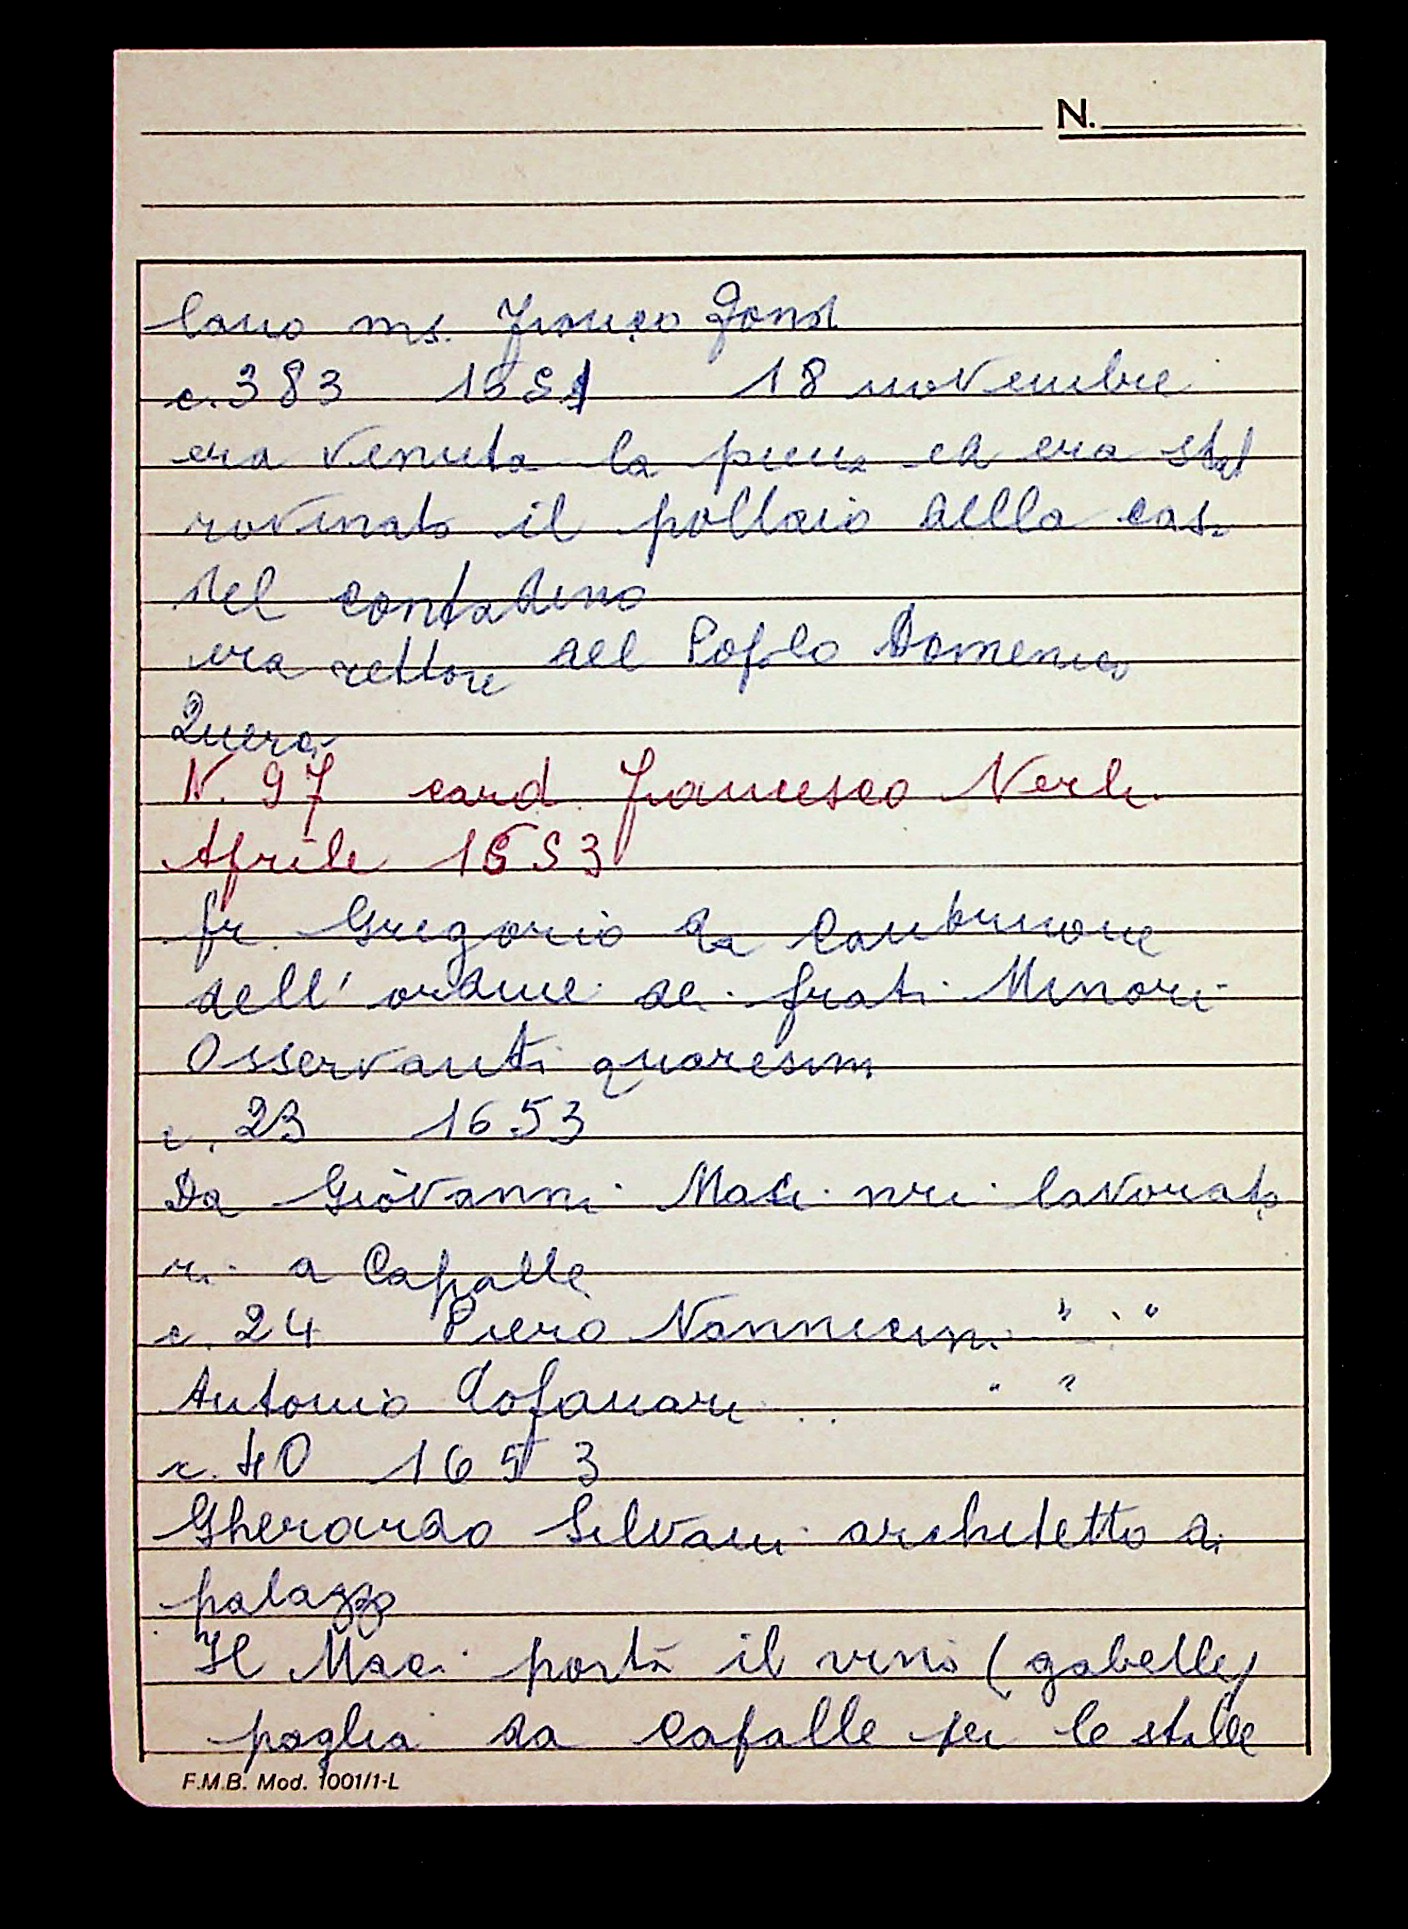 N.
lano ms. Franco Fond
c. 383 1651 18 novembre
era venuta la piena ed era stat
rovinato il pollaio della casa
del contadino
era rettore del Popolo Domenico
Quera
N. 97 card. Francesco Nerli
Aprile 1653
fr. Gregorio da
dell' ordine dei frati Minori
Osservanti quaresim
c. 23 1653
Da Giovanni Maci nri lavorato
ri a Capalle
c. 24 Piero Nannicini " "
Antonio Cofanari " "
c. 40 1653
Gherardo Silvani architetto di
palazzo
Il Maci portà il vino (gabelle)
paglia da Capalle per le stalle
F.M.B. Mod. 1001/1-L